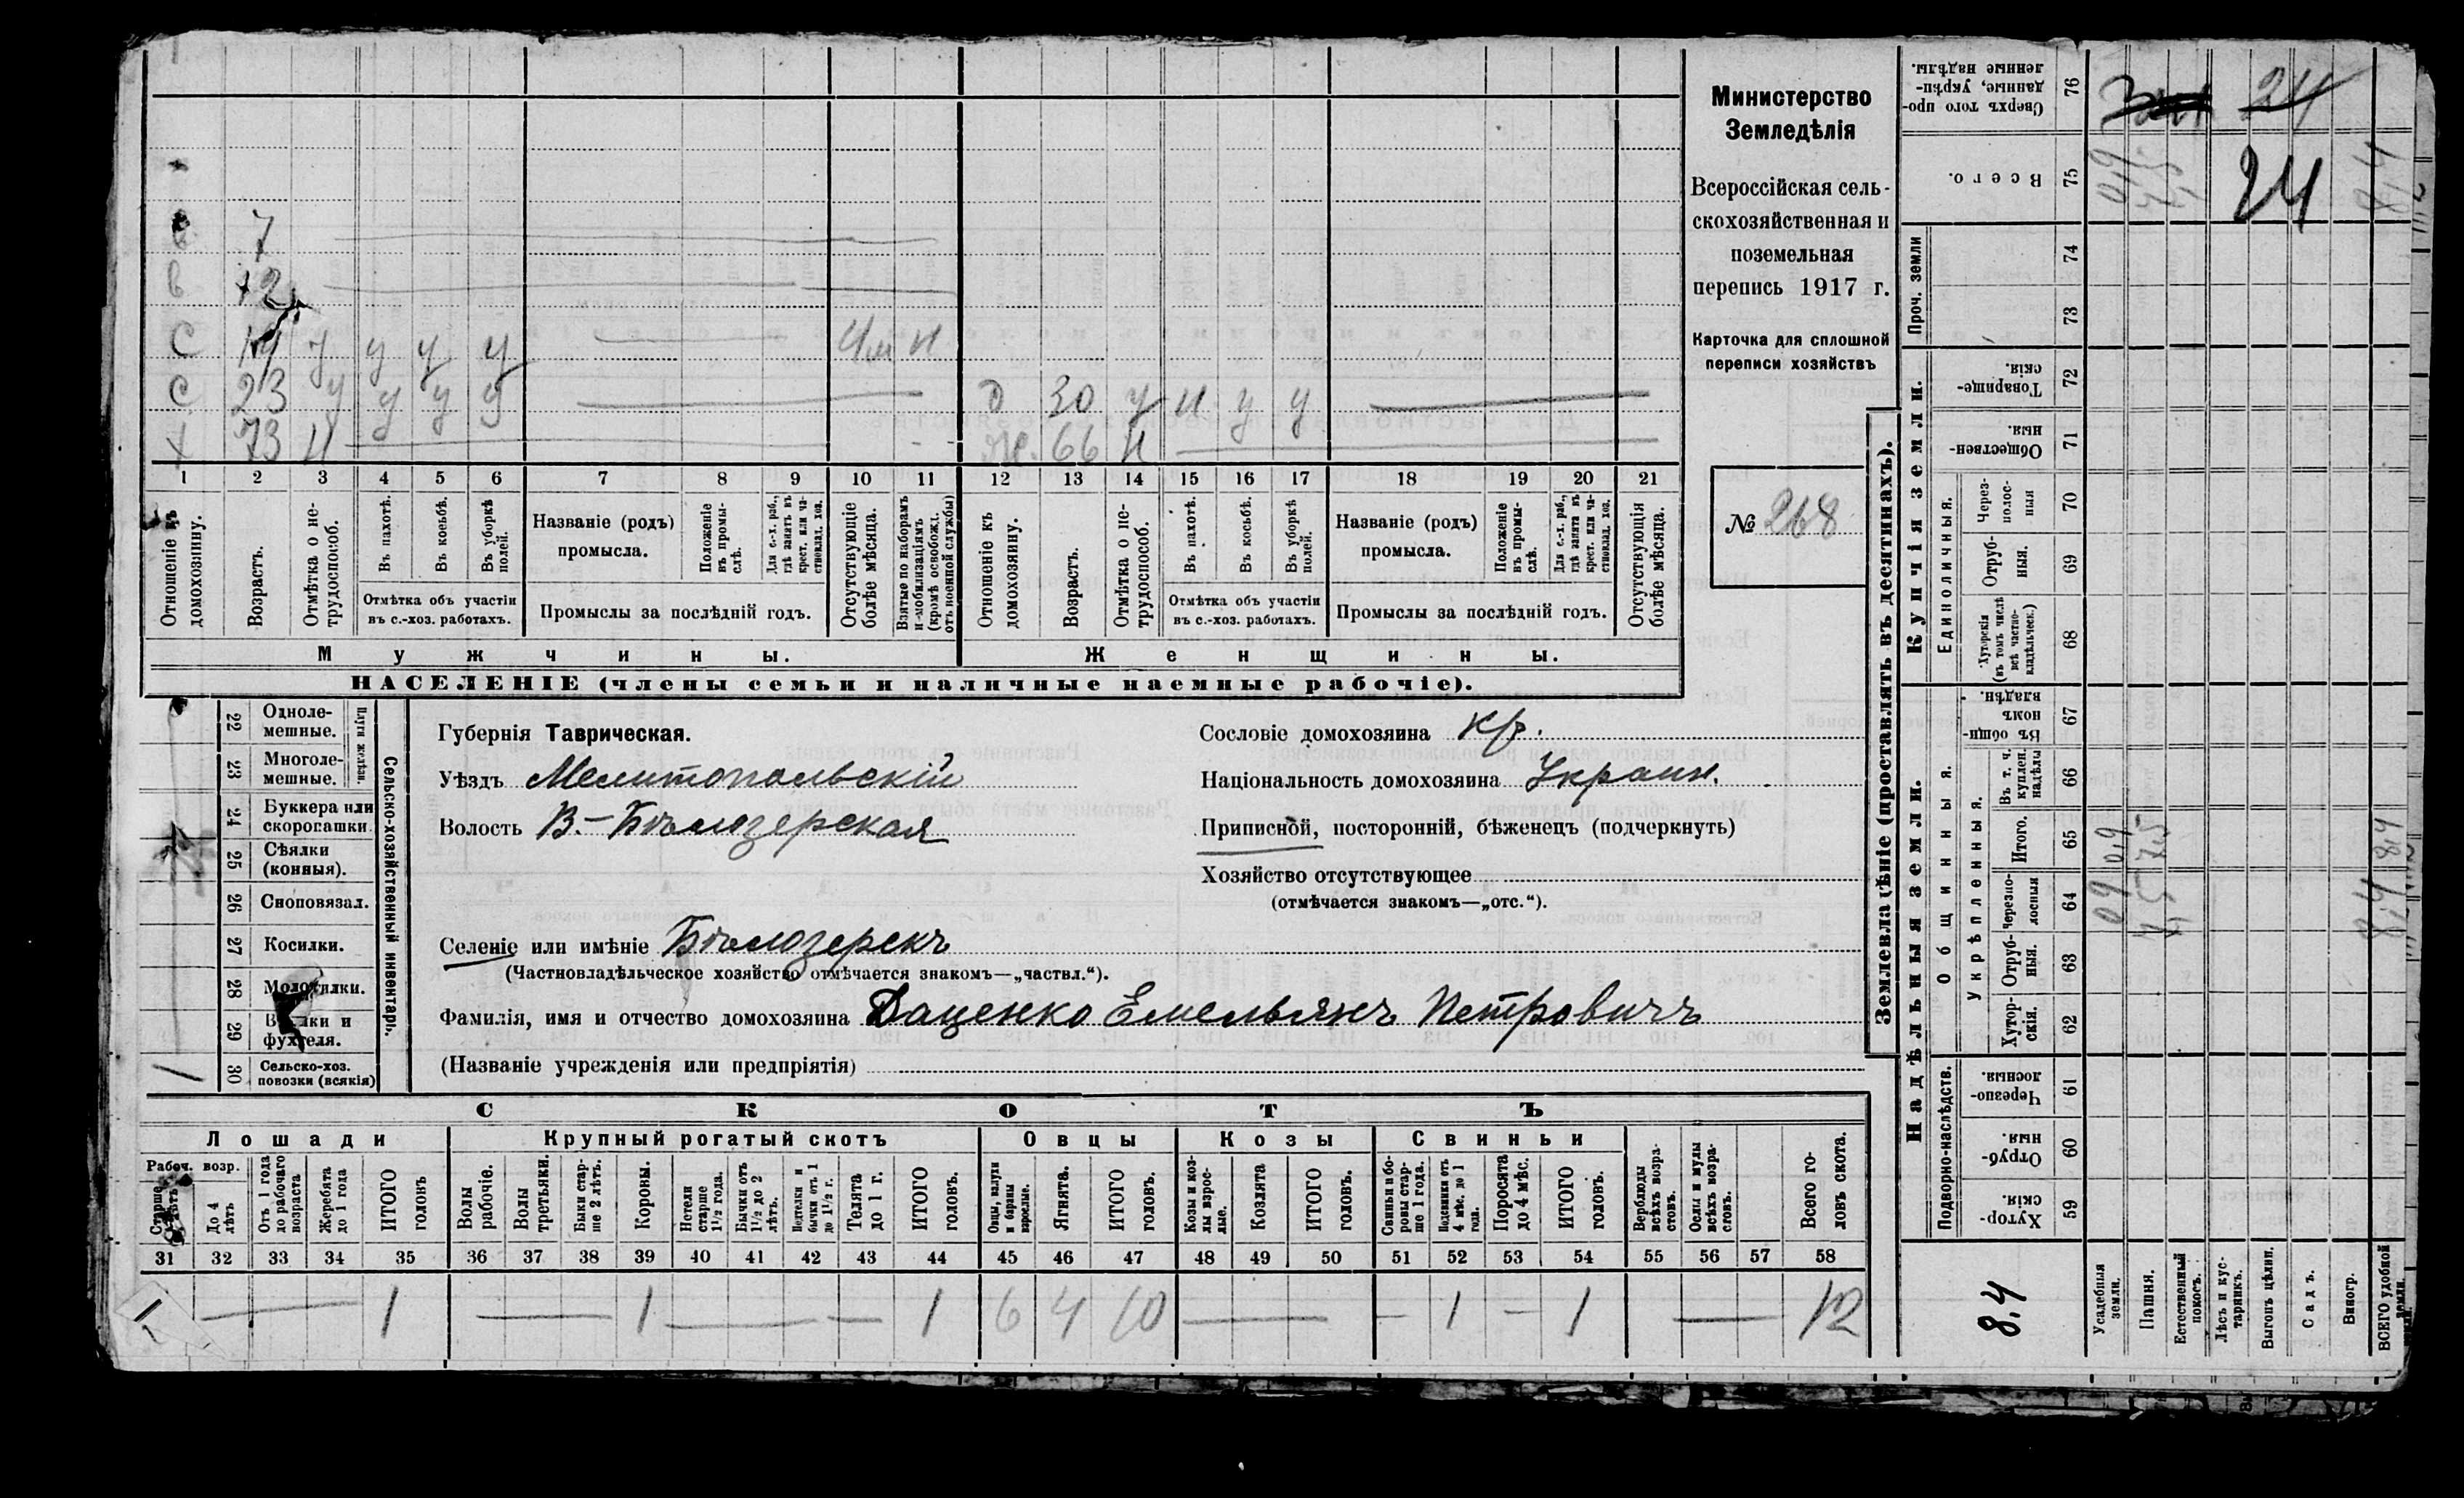 7
в 12
С 14 у у у у 4м н
С 23 у у у у д 30 у н у у
х 73 н ж. 66 н
1 2 3 4 5 6 7 8 9 10 11 12 13 14 15 16 17 18 19 20 21
Отношеніе къ домохозяину.
Возрастъ.
Отмѣтка о не-трудоспособ.
Въ пахотѣ.
Въ косьбѣ.
Въ уборкѣ полей.
Отмѣтка объ участіи
въ с.-хоз. работахъ.
Названіе (родъ)
промысла.
Положеніе въ промы-слѣ.
Для с.-х. раб., гдѣ занятъ въ крест. или ча-стновлад. хоз.
Промыслы за послѣдній годъ.
Отсутствующіе болѣе мѣсяца.
Взятые по наборамъ и мобилизаціямъ (кромѣ освобожд. отъ военной службы)
Отношеніе къ домохозяину.
Возрастъ.
Отмѣтка о не-трудоспособ.
Въ пахотѣ.
Въ косьбѣ.
Въ уборкѣ полей.
Отмѣтка объ участіи
въ с.-хоз. работахъ.
Названіе (родъ)
промысла.
Положеніе въ промы-слѣ.
Для с.-х. раб., гдѣ занята въ крест. или ча-стновлад. хоз.
Промыслы за послѣдній годъ.
Отсутствующія болѣе мѣсяца.
Мужчины. Женщины.
НАСЕЛЕНІЕ (члены семьи и наличные наемные рабочіе).
Министерство
Земледѣлія
Всероссійская сель-
скохозяйственная и
поземельная
перепись 1917 г.
Карточка для сплошной
переписи хозяйствъ
№ 268
22 Одноле-мешные.
23 Многоле-мешные.
Плуги желѣзн.
24 Буккера или скоропашки
25 Сѣялки (конныя).
26 Сноповязал.
27 Косилки.
28 Молотилки.
29 Вѣялки и фухтеля.
30 Сельско-хоз. повозки (всякія) 1
Сельско-хозяйственный инвентарь.
Губернія Таврическая.
Уѣздъ Мелитопольскій
Волость В.-Бѣлозерская
Селеніе или имѣніе Бѣлозерскъ
(Частновладѣльческое хозяйство отмѣчается знакомъ—„частвл.“).
Фамилія, имя и отчество домохозяина Даценко Емельянъ Петровичъ
(Названіе учрежденія или предпріятія)
Сословіе домохозяина кр.
Національность домохозяина Украин.
Приписной, посторонній, бѣженецъ (подчеркнуть)
Хозяйство отсутствующее
(отмѣчается знакомъ—„отс.“).
СКОТЪ
Лошади Крупный рогатый скотъ Овцы Козы Свиньи
Рабоч. возр.
Старше 4 лѣтъ
До 4 лѣтъ
Отъ 1 года до рабочаго возраста
Жеребята до 1 года
ИТОГО головъ
Волы рабочіе.
Волы третьяки.
Быки стар-ше 2 лѣтъ.
Коровы.
Нетели старше 1½ года.
Бычки отъ 1½ до 2 лѣтъ.
Нетелки и бычки отъ 1 до 1½ г.
Телята до 1 г.
ИТОГО головъ.
Овцы, валухи и бараны взрослые.
Ягнята.
ИТОГО головъ.
Козы и коз-лы взрос-лые.
Козлята
ИТОГО головъ.
Свиньи и бо-ровы стар-ше 1 года.
Подсвинки отъ 4 мѣс. до 1 года.
Поросята до 4 мѣс.
ИТОГО головъ.
Верблюды всѣхъ возра-стовъ.
Ослы и мулы всѣхъ возра-стовъ.
Всего го-ловъ скота.
31 32 33 34 35 36 37 38 39 40 41 42 43 44 45 46 47 48 49 50 51 52 53 54 55 56 57 58
1 — 1 — 1 — — 1 6 4 10 — — 1 — 1 — 12
Землевладѣніе (проставлять въ десятинахъ).
Купчія земли.
Надѣльныя земли.
Проч. земли
Единоличныя.
Общинныя.
Укрѣпленныя.
Подворно-наслѣдств.
76 Сверхъ того про-данные, укрѣп-ленные надѣлы. 24
75 Всего. 0,9 7,5 24 8,4
74
73
72 Товарище-скія.
71 Обществен-ныя.
70 Через-полос-ныя
69 Отруб-ныя.
68 Хуторскія (въ томъ числѣ всѣ частно-владѣльческ.)
67 Въ общин-номъ владѣн.
66 Въ т. ч. куплен. надѣлы
65 Итого. 0,9 7,5 8,4
64 Черезпо-лосныя 0,9 7,5 8,4
63 Отруб-ныя.
62 Хутор-скія.
61 Черезпо-лосныя.
60 Отруб-ныя.
59 Хутор-скія.
8.4
Усадебныя земли.
Пашня.
Естественный покосъ.
Лѣсъ и кус-тарникъ.
Выгонъ цѣлин.
Садъ.
Виногр.
ВСЕГО удобной земли.